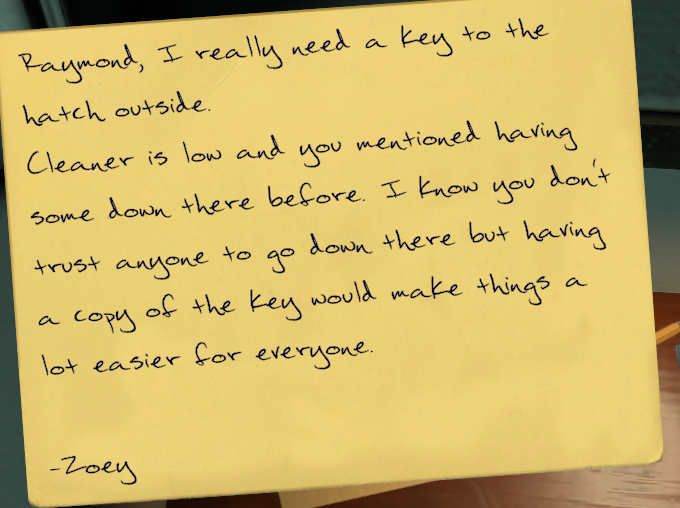 Raymond, I really need a key to the
hatch outside.
Cleaner is low and you mentioned having
some down there before. I know you don't
trust anyone to go down there but having
a copy of the key would make things a
lot easier for everyone.
-Zoey